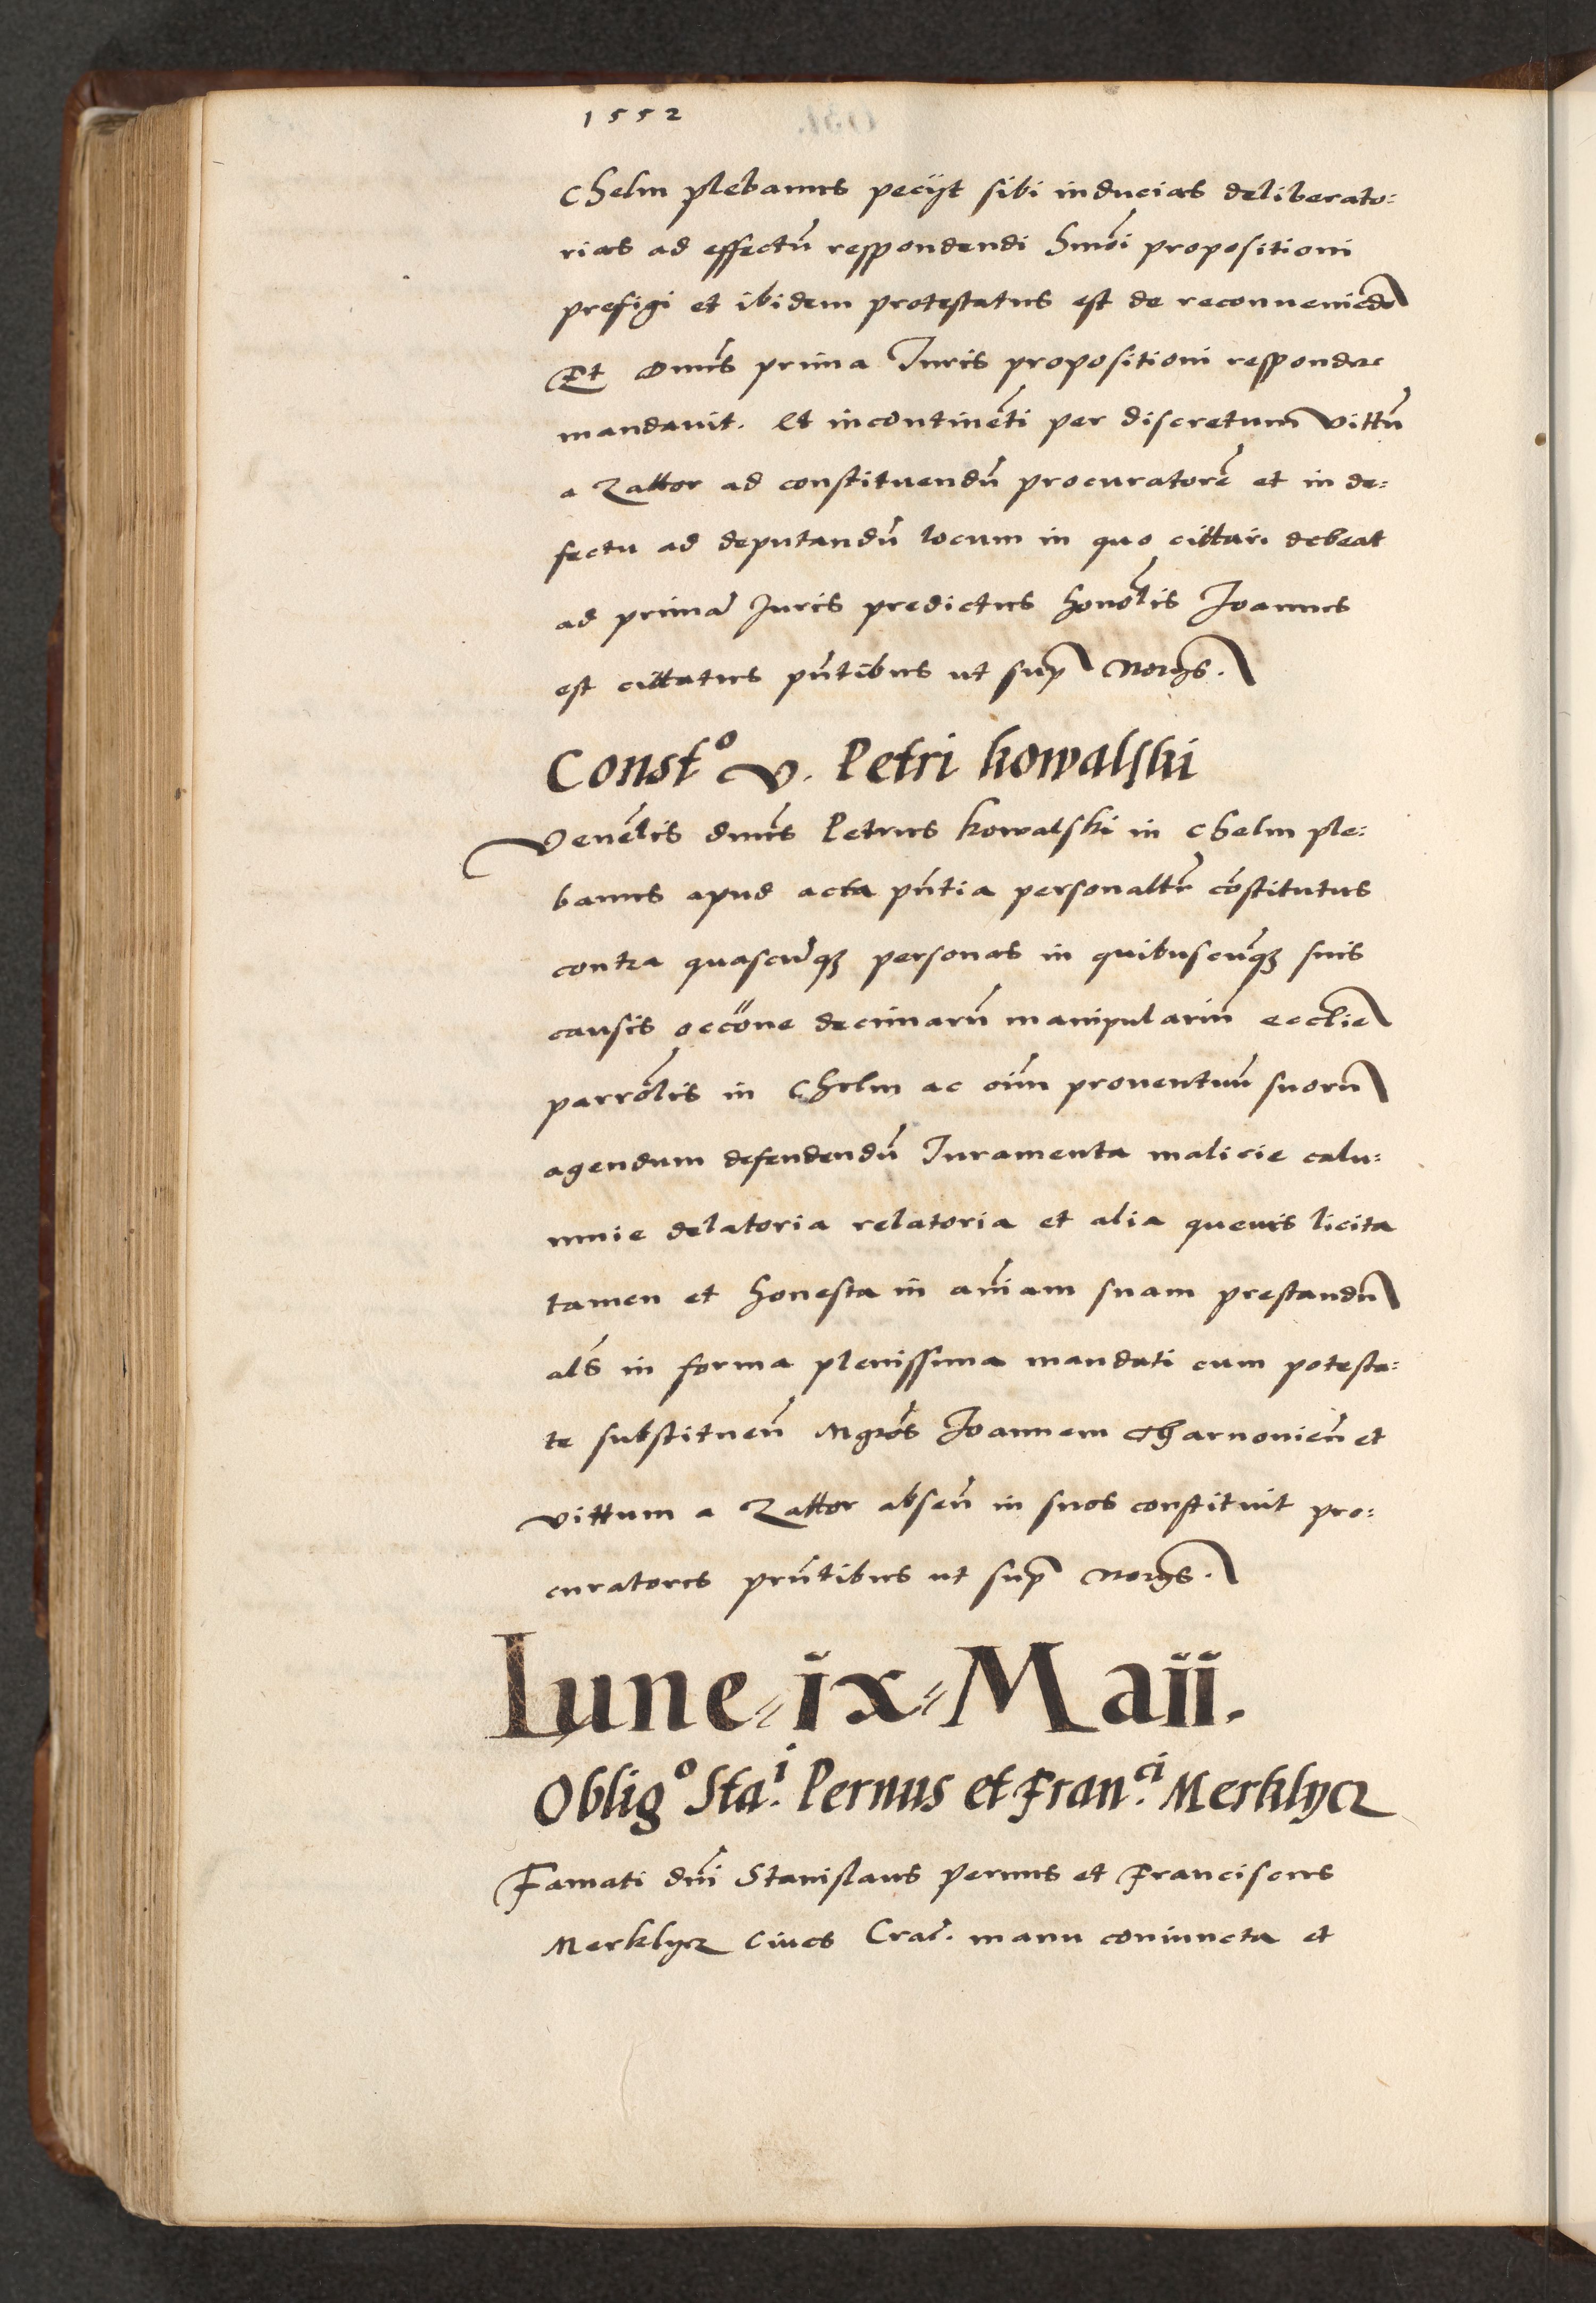 1552
Chelm plebanus pecijt sibi inducias deliberato:
rias ad effectũ respondendi hmõi propositioni
prefigi et ibidem protestatus est de reconueniẽdo
Et Dñus prima Iuris propositioni respondere
mandauit. Et incontinẽti per discretum Vittũ
a Zathor ad constituendũ procuratorẽ et in de:
fectu ad deputandũ locum in quo cittari debeat
ad primã Iuris predictus honõlis Joannes
est cittatus pñtibus ut sup̃ Norijs.
Constº v. Petri kowalski
Venẽlis dñus Petrus kowalski in Chelm ple:
banus apud acta pñtia personaltr̃ cõstitutus
contra quascũqȝ personas in quibuscũqȝ suis
causis occõne decimarũ manipulariũ ecclie
parrõlis in Chelm ac oĩm prouentuũ suorũ
agendum defendendũ Iuramenta malicie calu:
mnie delatoria relatoria et alia queuis licita
tamen et honesta in aĩam suam prestandũ
alš in forma plenissima mandati cum potesta:
te substitueñ Mgrõs Joannem Tharnouieñ et
Vittum a Zathor abseñ in suos constituit pro:
curatores prñtibus ut sup̃ Norijs.
Lune ix Maii.
Obligº Sta.i Pernus et Fran.ci Merklycz
Famati dñi Stanislaus Pernus et Franciscus
Merklycz Ciues Crač. manu coniuncta et